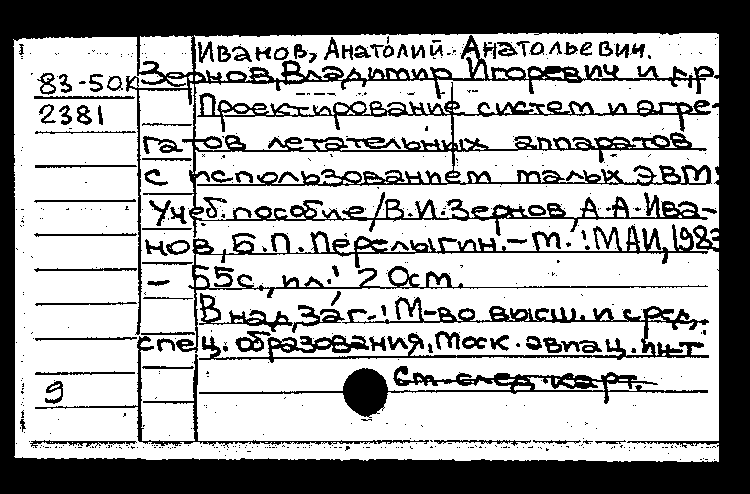 Иванов, Анатолий Анатольевич.
83-50к Зернов, Владимир Игоревич и др.
2381 Проектирование систем и агре-
гатов летательных аппаратов
с использованием малых ЭВМ:
Учеб. пособие / В.И. Зернов, А.А. Ива-
нов, Б.П. Перелыгин. - М.: МАИ, 1983
- 55с., ил.; 20см.
В над. заг.: М-во высш. и сред.
спец. образования, Моск. авиац. ин-т
9 См. след. карт.